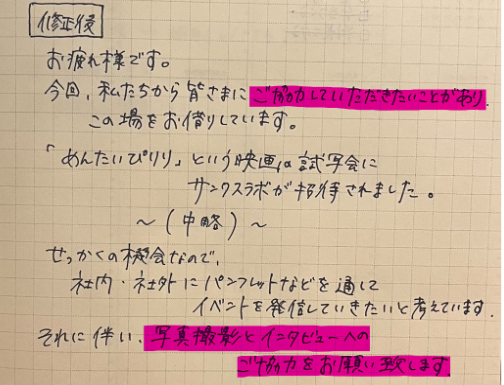 修正後
お疲れ様です。
今回、私たちから皆さまにご協力していただきたいことがあり
この場をお借りしています。
「めんたいぴりり」という映画の試写会に
サンクスラボが招待されました。
～（中略）～
せっかくの機会なので、
社内・社外にパンフレットなどを通して
イベントを発信していきたいと考えています。
それに伴い、写真撮影とインタビューへの
ご協力をお願い致します。